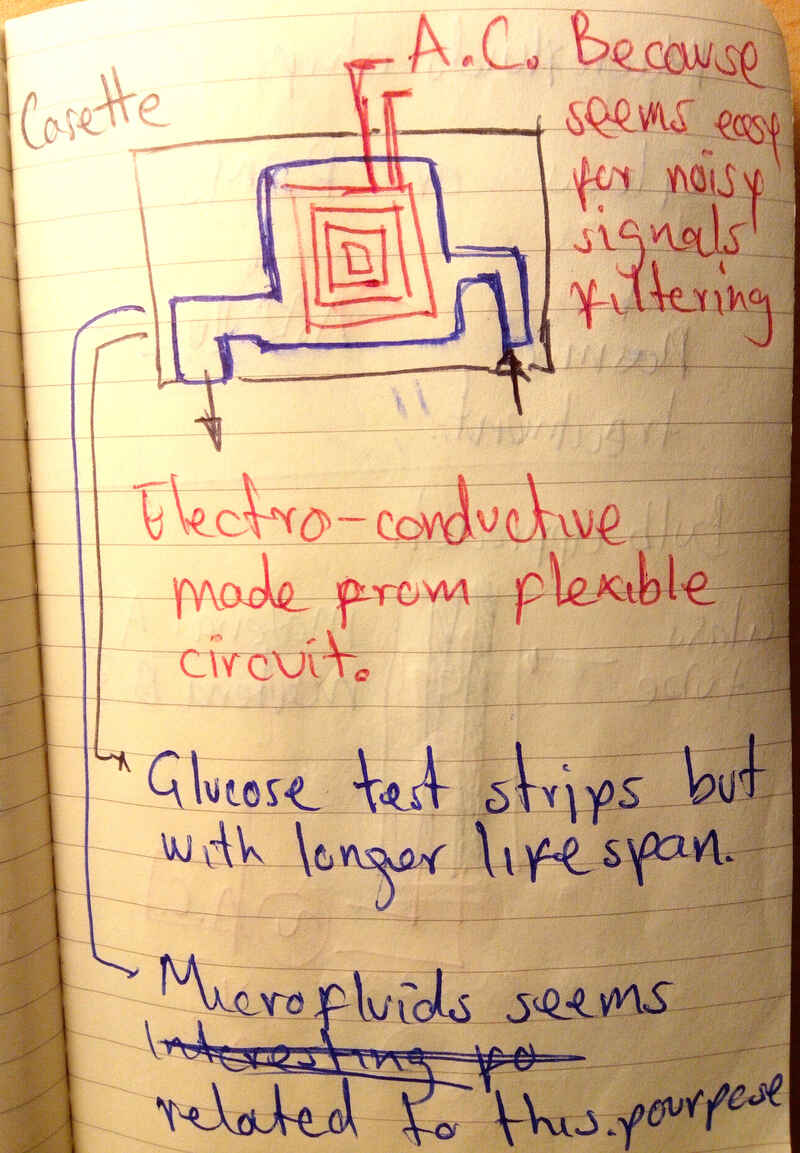 Casette
A.C. Because
seems easy
for noisy
signals
filtering
Electro-conductive
made from flexible
circuit.
Glucose test strips but
with longer life span.
Microfluids seems
Interesting fo
related to this. pourpese